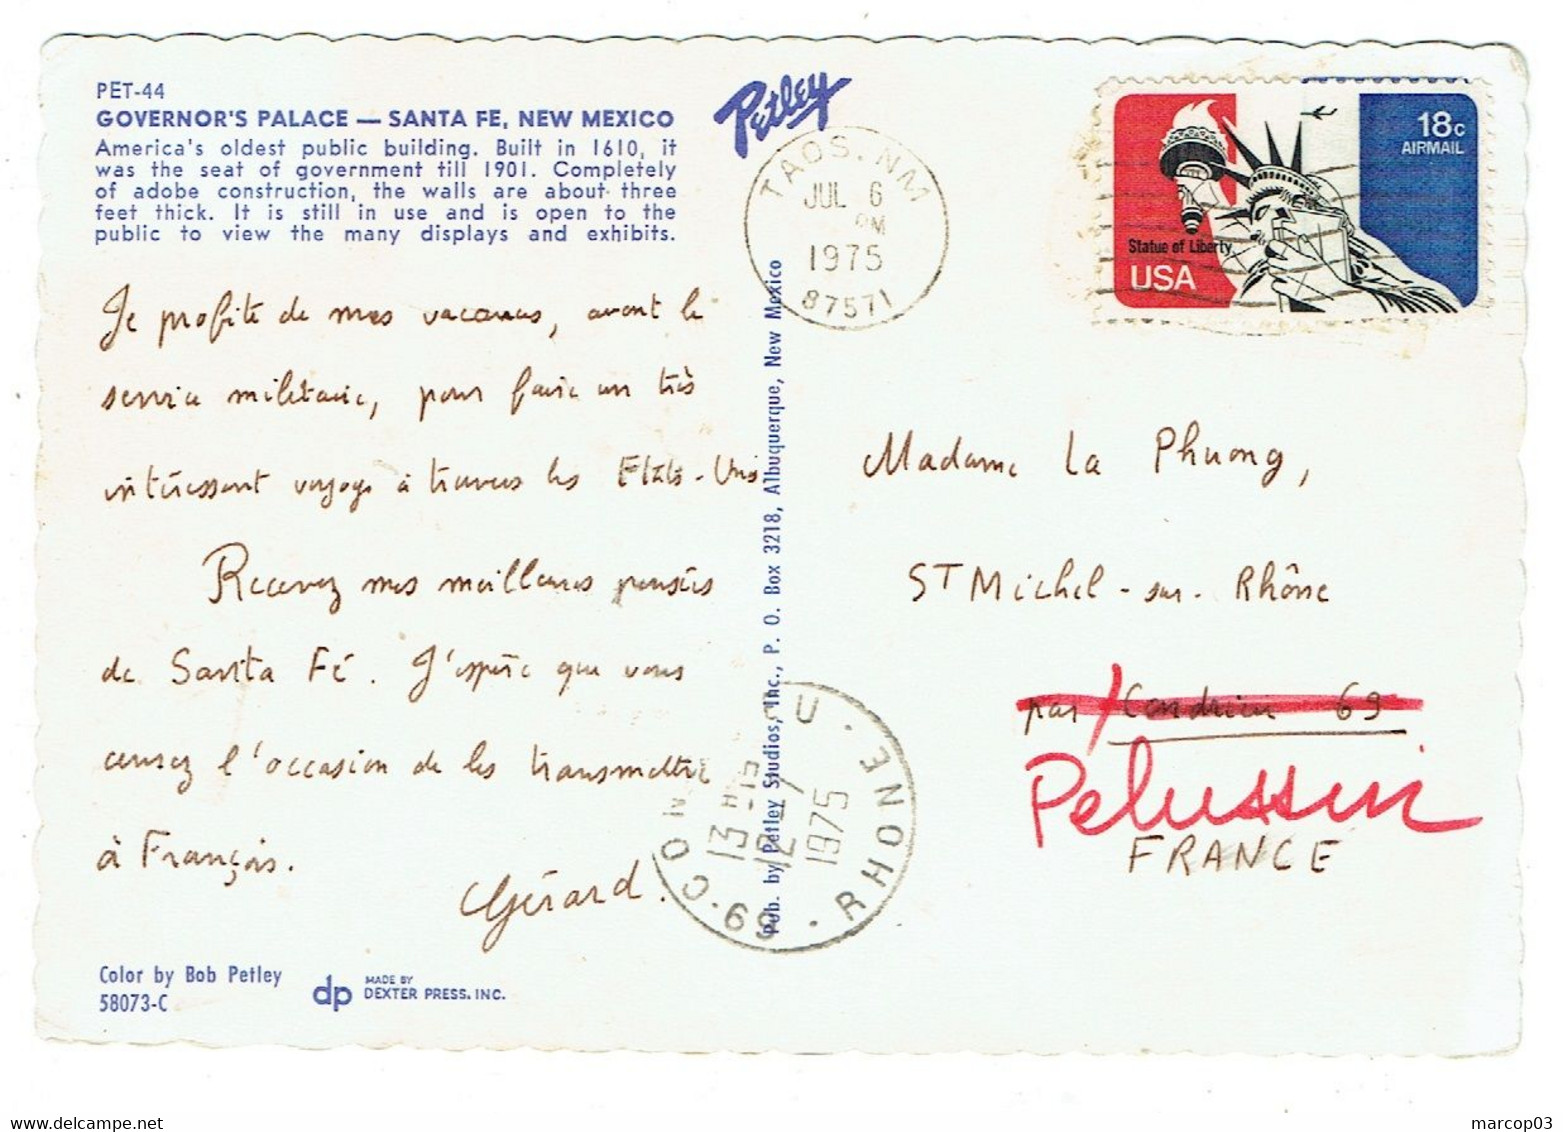 PET-44
GOVERNOR'S PALACE — SANTA FE, NEW MEXICO
America's oldest public building. Built in 1610, it
was the seat of government till 1901. Completely
of adobe construction, the walls are about three
feet thick. It is still in use and is open to the
public to view the many displays and exhibits.
Je profite de mes vacances, avant le
service militaire, pour faire un très
intéressant voyage à travers les Etats-Unis
Recevez mes meilleures pensées
de Santa Fé. J'espère que vous
aurez l'occasion de les transmettre
à François.
Gérard.
Color by Bob Petley
58073-C
dp MADE BY
DEXTER PRESS, INC.
Petley
Pub. by Petley Studios, Inc., P. O. Box 3218, Albuquerque, New Mexico
TAOS, NM
JUL 6
PM
1975
87571
18c
AIRMAIL
Statue of Liberty
USA
Madame La Phuong,
ST Michel-sur-Rhône
par Condrieu 69
Pelussin
FRANCE
69 · CONDRIEU · RHONE
13 H 15
12 - 7
1975
marcop03